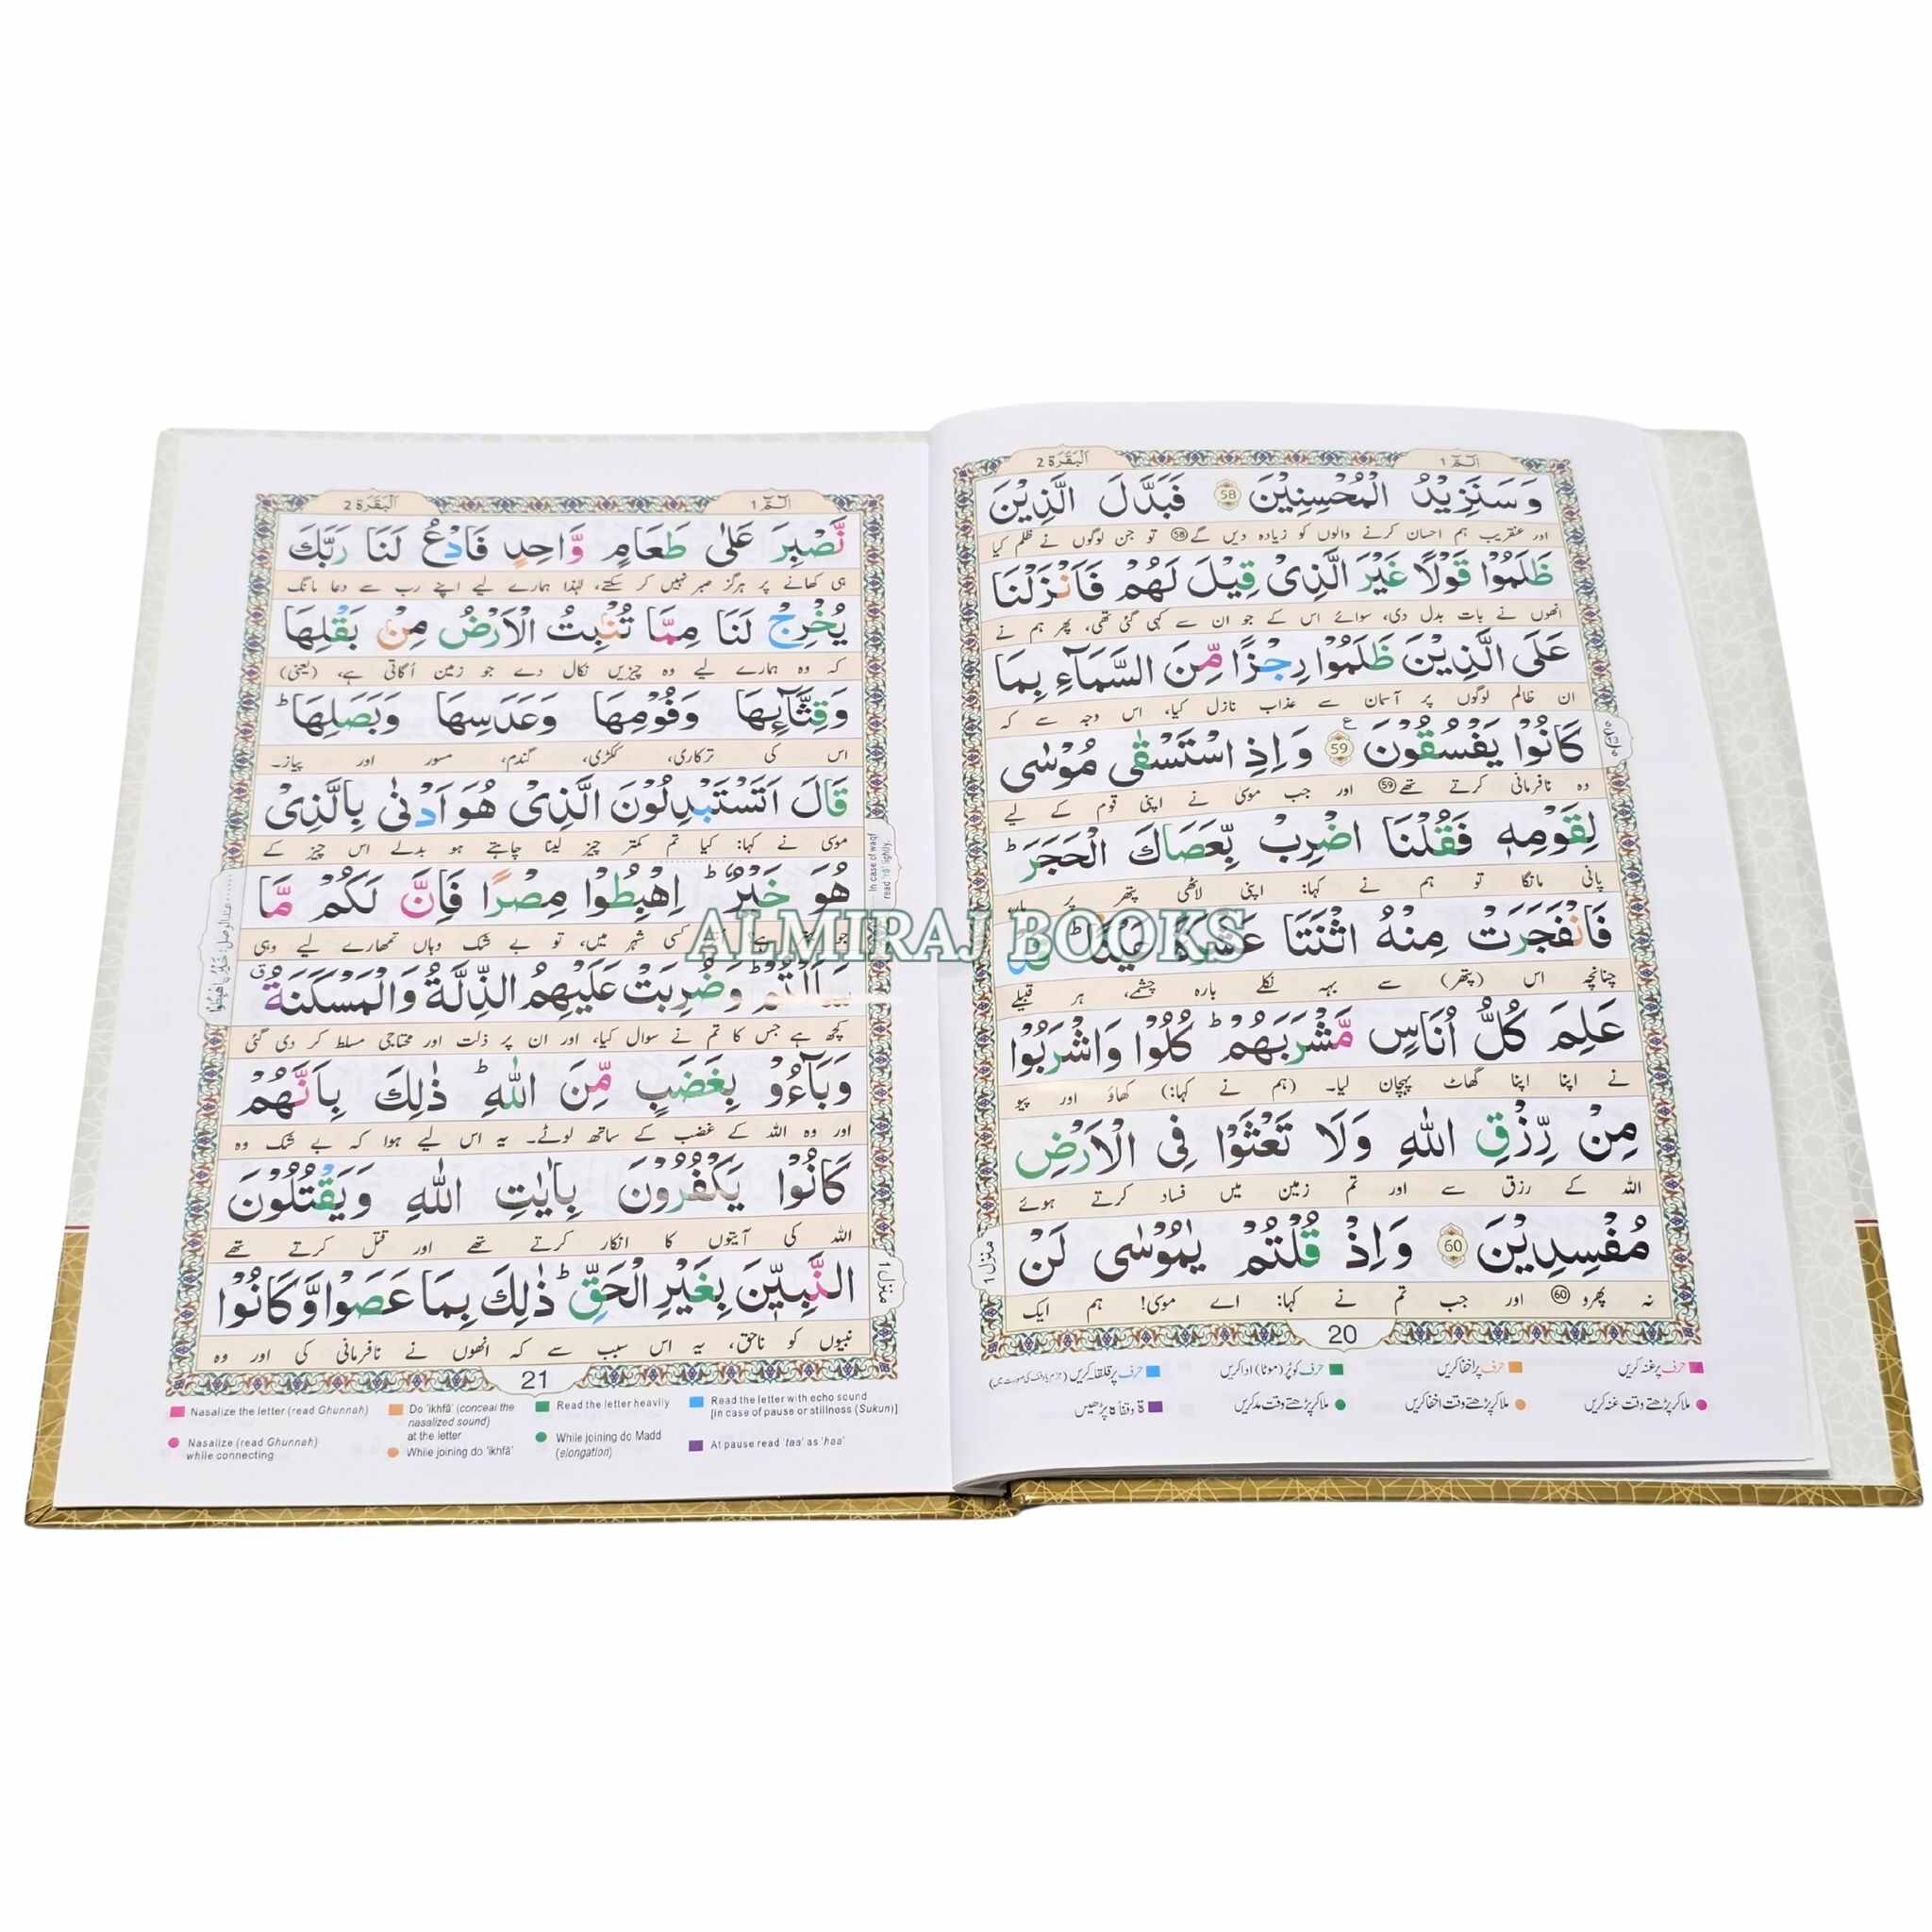 الٓمّٓ 1
اَلْبَقَرَة 2
وَ سَنَزِيْدُ الْمُحْسِنِيْنَ 58 فَبَدَّلَ الَّذِيْنَ
اور عنقریب ہم احسان کرنے والوں کو زیادہ دیں گے 58 تو جن لوگوں نے ظلم کیا
ظَلَمُوْا قَوْلًا غَيْرَ الَّذِيْ قِيْلَ لَهُمْ فَاَنْزَلْنَا
انھوں نے بات بدل دی، سوائے اس کے جو ان سے کہی گئی تھی، پھر ہم نے
عَلَى الَّذِيْنَ ظَلَمُوْا رِجْزًا مِّنَ السَّمَآءِ بِمَا
ان ظالم لوگوں پر آسمان سے عذاب نازل کیا، اس وجہ سے کہ
كَانُوْا يَفْسُقُوْنَ 59 ع وَ اِذِ اسْتَسْقٰى مُوْسٰى
وہ نافرمانی کرتے تھے 59 اور جب موسی نے اپنی قوم کے لیے
لِقَوْمِهٖ فَقُلْنَا اضْرِبْ بِّعَصَاكَ الْحَجَرَ ؕ
پانی مانگا تو ہم نے کہا: اپنی لاٹھی پتھر پر مار،
فَانْفَجَرَتْ مِنْهُ اثْنَتَا عَشْرَةَ عَيْنًا ؕ قَدْ
چنانچہ اس (پتھر) سے بہہ نکلے بارہ چشمے، ہر قبیلے
عَلِمَ كُلُّ اُنَاسٍ مَّشْرَبَهُمْ ؕ كُلُوْا وَاشْرَبُوْا
نے اپنا اپنا گھاٹ پہچان لیا۔ (ہم نے کہا:) کھاؤ اور پیو
مِنْ رِّزْقِ اللّٰهِ وَلَا تَعْثَوْا فِى الْاَرْضِ
اللہ کے رزق سے اور تم زمین میں فساد کرتے ہوئے
مُفْسِدِيْنَ 60 وَ اِذْ قُلْتُمْ يٰمُوْسٰى لَنْ
نہ پھرو 60 اور جب تم نے کہا: اے موسی! ہم ایک
منزل 1
20
حرف پر غنہ کریں
حرف پر اخفا کریں
حرف کو پُر (موٹا) ادا کریں
حرف پر قلقلہ کریں
ملا کر پڑھتے وقت غنہ کریں
ملا کر پڑھتے وقت اخفا کریں
ملا کر پڑھتے وقت مد کریں
ة وقفاً ہ پڑھیں
الٓمّٓ 1
اَلْبَقَرَة 2
نَّصْبِرَ عَلٰى طَعَامٍ وَّاحِدٍ فَادْعُ لَنَا رَبَّكَ
ہی کھانے پر ہرگز صبر نہیں کر سکتے، لہٰذا ہمارے لیے اپنے رب سے دعا مانگ
يُخْرِجْ لَنَا مِمَّا تُنْۢبِتُ الْاَرْضُ مِنْۢ بَقْلِهَا
کہ وہ ہمارے لیے وہ چیزیں نکال دے جو زمین اُگاتی ہے، (یعنی)
وَقِثَّآىِٕهَا وَفُوْمِهَا وَعَدَسِهَا وَبَصَلِهَا ؕ
اس کی ترکاری، ککڑی، گندم، مسور اور پیاز۔
قَالَ اَتَسْتَبْدِلُوْنَ الَّذِيْ هُوَ اَدْنٰى بِالَّذِيْ
موسی نے کہا: کیا تم کمتر چیز لینا چاہتے ہو بدلے اس چیز کے
هُوَ خَيْرٌ ؕ اِهْبِطُوْا مِصْرًا فَاِنَّ لَكُمْ مَّا
کسی شہر میں، تو بے شک وہاں تمھارے لیے وہی
سَاَلْتُمْ ؕ وَضُرِبَتْ عَلَيْهِمُ الذِّلَّةُ وَالْمَسْكَنَةُ ق
کچھ ہے جس کا تم نے سوال کیا، اور ان پر ذلت اور محتاجی مسلط کر دی گئی
وَبَآءُوْ بِغَضَبٍ مِّنَ اللّٰهِ ؕ ذٰلِكَ بِاَنَّهُمْ
اور وہ اللہ کے غضب کے ساتھ لوٹے۔ یہ اس لیے ہوا کہ بے شک وہ
كَانُوْا يَكْفُرُوْنَ بِاٰيٰتِ اللّٰهِ وَيَقْتُلُوْنَ
اللہ کی آیتوں کا انکار کرتے تھے اور قتل کرتے تھے
النَّبِيّٖنَ بِغَيْرِ الْحَقِّ ؕ ذٰلِكَ بِمَا عَصَوْا وَّكَانُوْا
نبیوں کو ناحق، یہ اس سبب سے کہ انھوں نے نافرمانی کی اور وہ
In case of waqf
منزل 1
21
Nasalize the letter (read Ghunnah)
Do 'ikhfā' (conceal the nasalized sound) at the letter
Read the letter heavily
Read the letter with echo sound [in case of pause or stillness (Sukun)]
Nasalize (read Ghunnah) while connecting
While joining do 'ikhfā'
While joining do Madd (elongation)
At pause read 'taa' as 'haa'
ALMIRAJ BOOKS